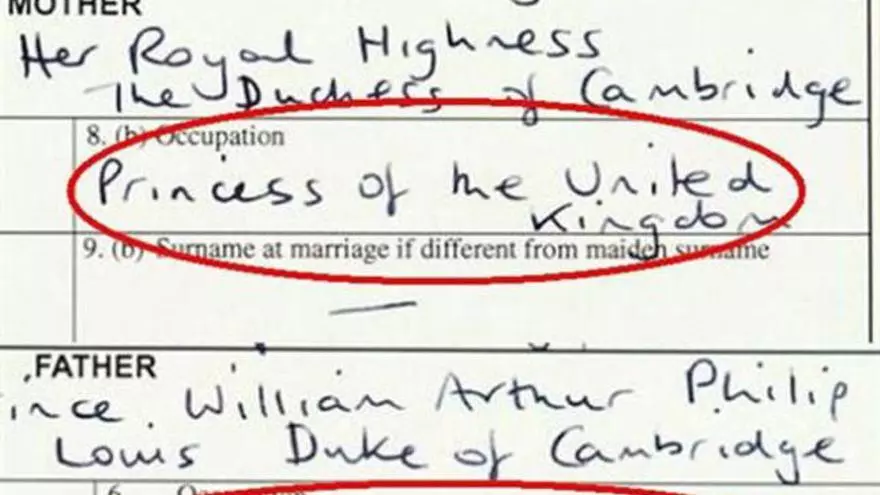 MOTHER
Her Royal Highness
The Duchess of Cambridge
8. (b) Occupation
Princess of the United
Kingdom
9. (b) Surname at marriage if different from maiden surname
—
FATHER
ince William Arthur Philip
Louis Duke of Cambridge
6. Occupation